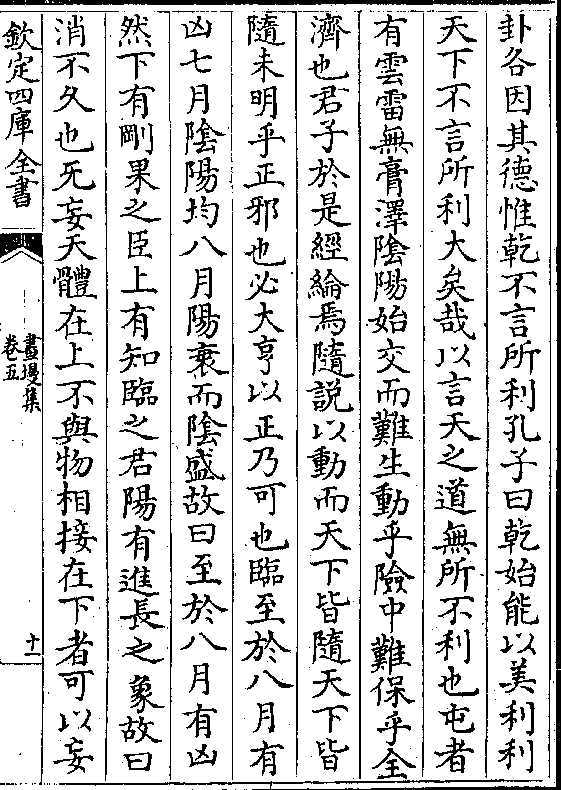 卦各因其德惟乾不言所利孔子曰乾始能以美利利
天下不言所利大矣哉以言天之道無所不利也屯者
有雲雷無膏澤陰陽始交而難生動乎險中難保乎全
濟也君子於是經綸焉隨説以動而天下皆隨天下皆
隨未明乎正邪也必大亨以正乃可也臨至於八月有
凶七月陰陽均八月陽衰而陰盛故曰至於八月有凶
然下有剛果之臣上有知臨之君陽有進長之象故曰
消不久也无妄天體在上不與物相接在下者可以妄
欽定四庫全書
畫墁集
卷五
十一